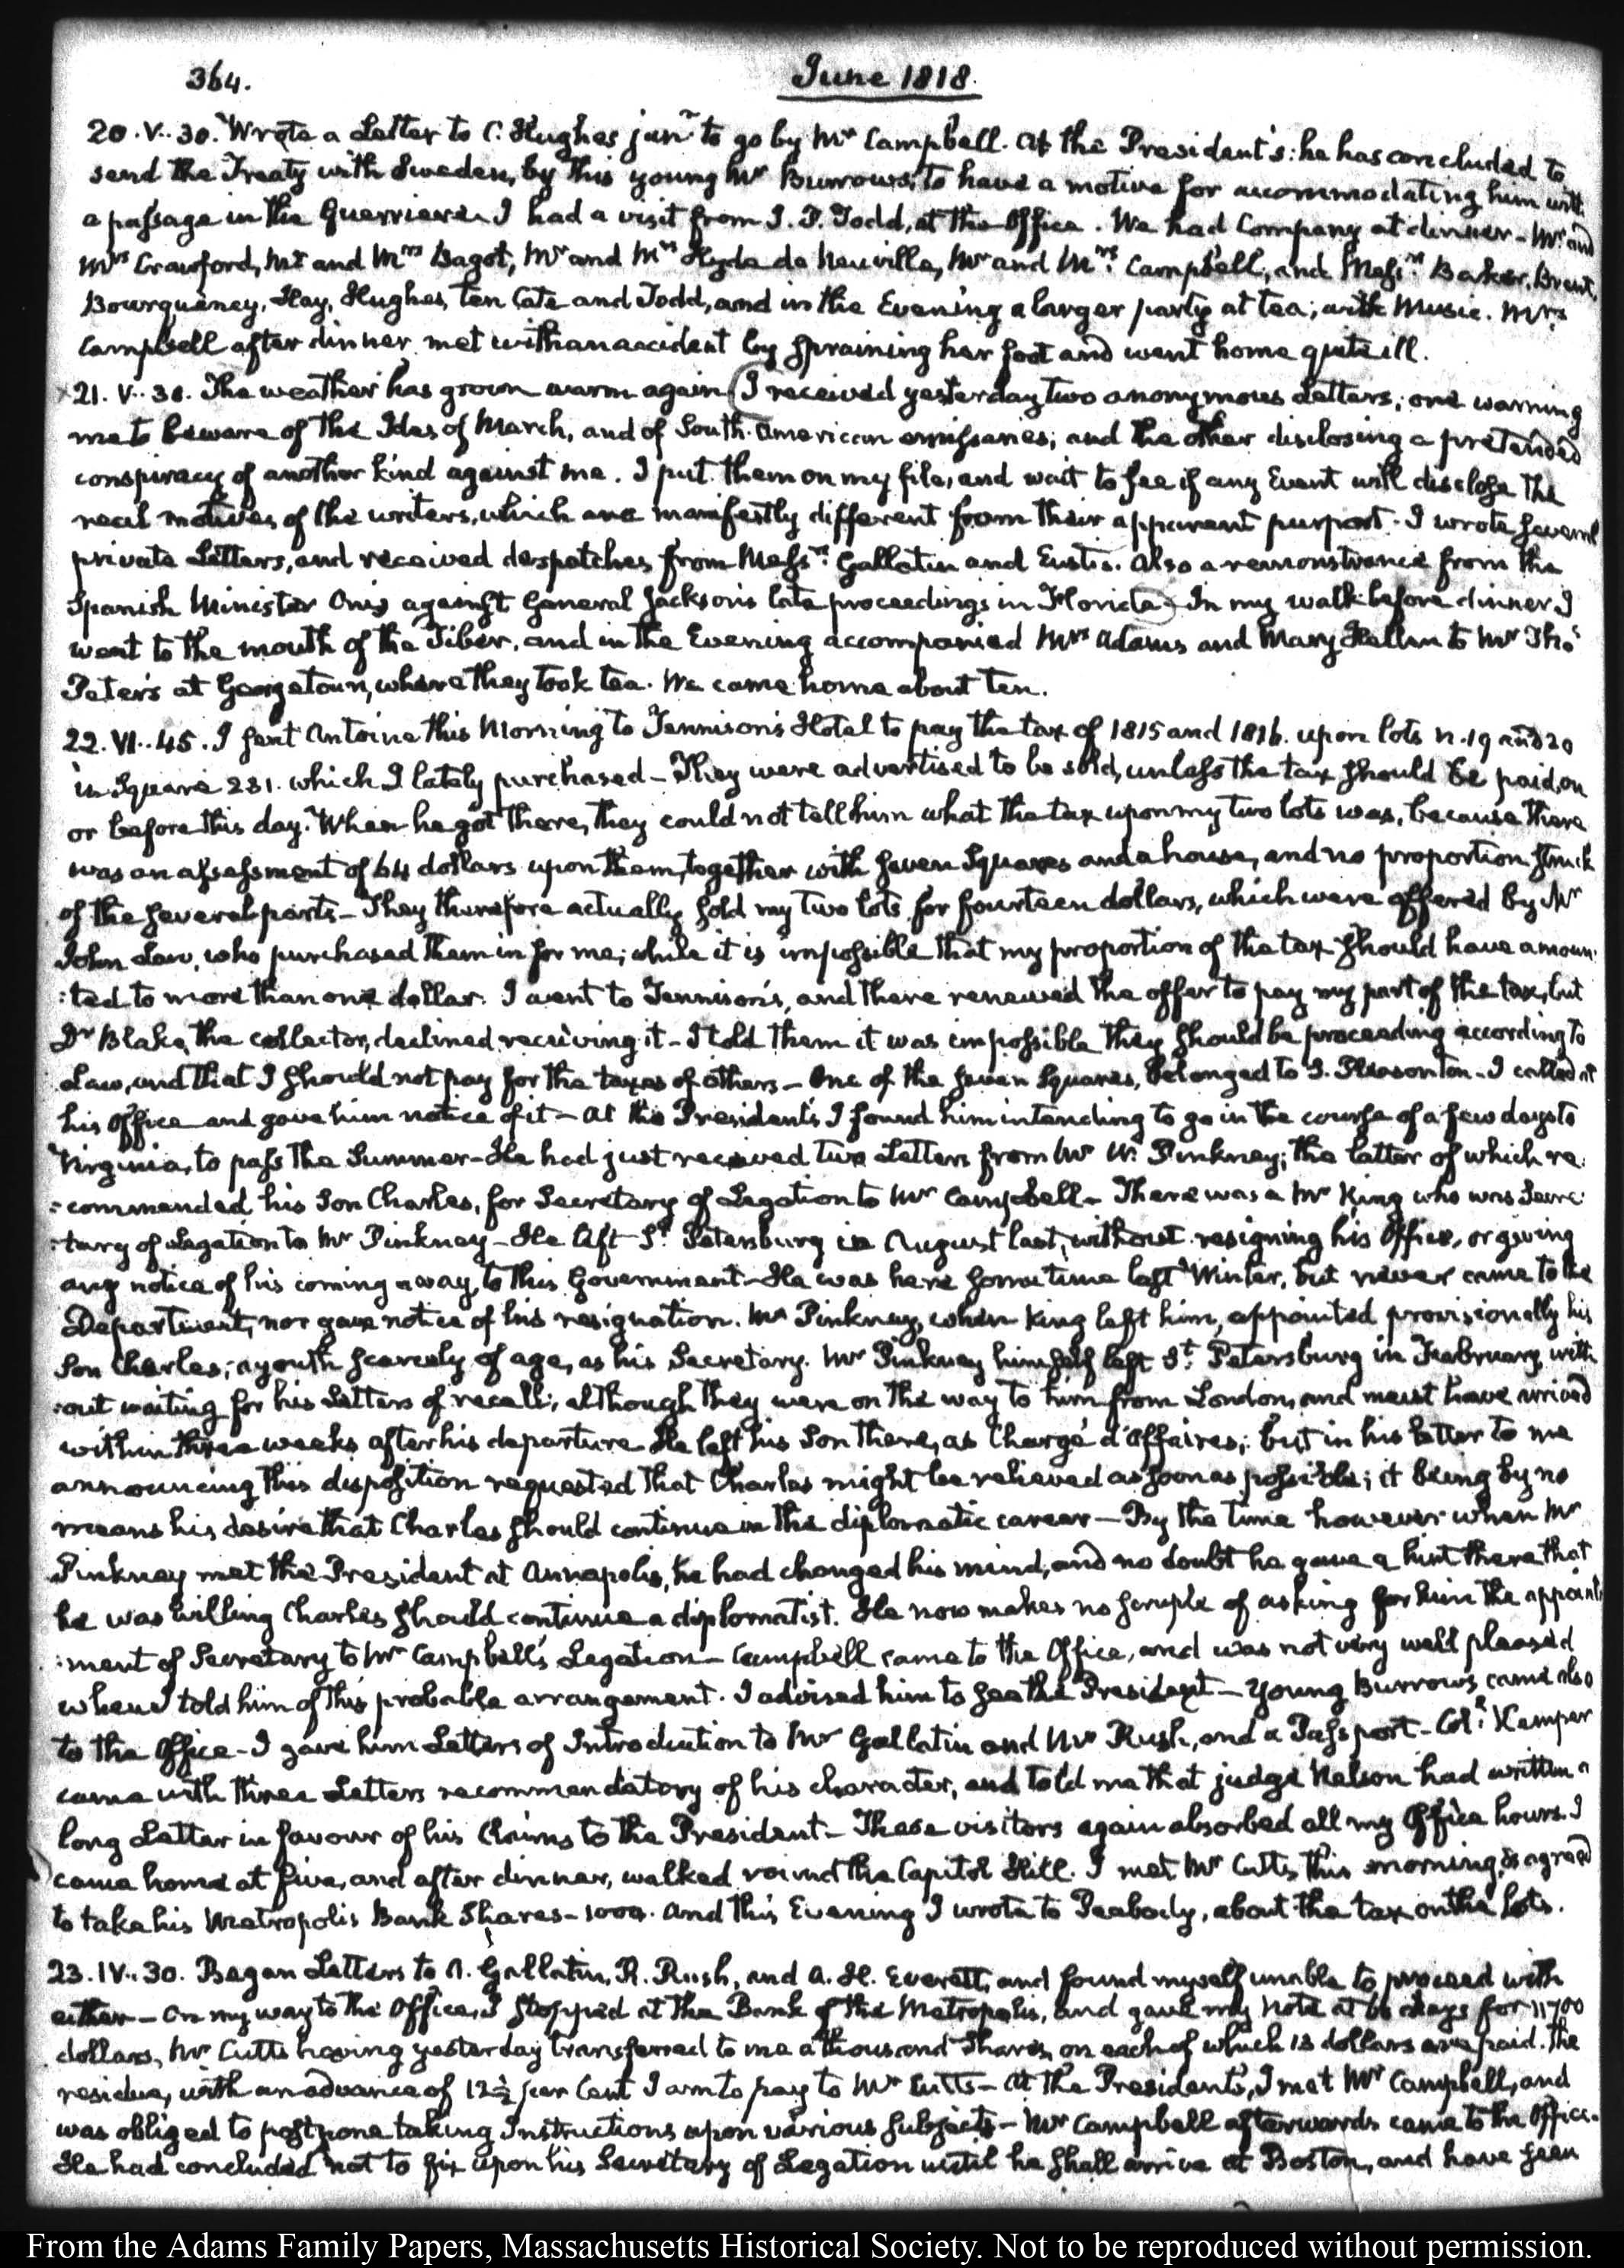 364. June 1818.
20. V..30. Wrote a Letter to C. Hughes junr. to go by Mr Campbell. At the President's: he has concluded to
send the Treaty with Sweden, by this young Mr Burrows, to have a motive for accommodating him with
a passage in the Guerriere. I had a visit from J. P. Todd, at the Office. We had Company at dinner — Mr and
Mrs Crawford, Mr and Mrs Bagot, Mr and Mrs Hyde de Neuville, Mr and Mrs. Campbell, and Messrs Baker, Brent,
Bourqueney, Hay, Hughes, ten Cate and Todd, and in the Evening a larger party at tea; with Music. Mrs.
Campbell after dinner met with an accident by spraining her foot and went home quite ill.
21. V..30. The weather has grown warm again (I received yesterday two anonymous Letters; one warning
me to beware of the Ides of March, and of South-American emissaries; and the other disclosing a pretended
conspiracy of another kind against me. I put them on my file, and wait to see if any Event will disclose the
real motives of the writers, which are manifestly different from their apparent purport. I wrote several
private Letters, and received despatches from Messrs. Gallatin and Eustis. Also a remonstrance from the
Spanish Minister Onis against General Jackson's late proceedings in Florida) In my walk before dinner I
went to the mouth of the Tiber, and in the Evening accompanied Mrs Adams and Mary Hellen to Mr Thos
Peter's at Georgetown, where they took tea. We came home about ten.
22. VI..45. I sent Antoine this Morning to Tennison's Hotel to pay the tax of 1815 and 1816. upon lots n. 19 and 20
in Square 231. which I lately purchased — They were advertised to be sold, unless the tax should be paid, on
or before this day. When he got there, they could not tell him what the tax upon my two lots was, because there
was an assessment of 64 dollars upon them, together with seven Squares and a house, and no proportion struck
of the several parts — They therefore actually sold my two lots for fourteen dollars, which were offered by Mr
John Law, who purchased them in for me; while it is impossible that my proportion of the tax should have amoun-
:ted to more than one dollar. I went to Tennison's, and there renewed the offer to pay my part of the tax, but
Dr Blake, the collector, declined receiving it — I told them it was impossible they should be proceeding according to
Law, and that I should not pay for the taxes of others — One of the seven Squares, belonged to S. Pleasonton — I called at
his Office and gave him notice of it — At the President's I found him intending to go in the course of a few days to
Virginia, to pass the Summer — He had just received two Letters from Mr W. Pinkney; the latter of which re:
:commended his Son Charles, for Secretary of Legation to Mr Campbell — There was a Mr King who was Secre:
:tary of Legation to Mr Pinkney — He left St. Petersburg in August last, without resigning his Office, or giving
any notice of his coming away, to this Government — He was here some time last Winter, but never came to the
Department, nor gave notice of his resignation. Mr Pinkney, when King left him, appointed provisionally his
Son Charles; a youth scarcely of age, as his Secretary. Mr Pinkney himself left St. Petersburg in February with
:out waiting for his Letters of recall; although they were on the way to him from London, and must have arrived
within three weeks after his departure He left his Son there, as Chargé d'Affaires; but in his letter to me
announcing this disposition requested that Charles might be relieved as soon as possible; it being by no
means his desire that Charles should continue in the diplomatic career — By the time however when Mr
Pinkney met the President at Annapolis, he had changed his mind, and no doubt he gave a hint there that
he was willing Charles should continue a diplomatist. He now makes no scruple of asking for him the appoint
:ment of Secretary to Mr Campbell's Legation — Campbell came to the Office, and was not very well pleased
when I told him of this probable arrangement. I advised him to see the President — Young Burrows came also
to the Office — I gave him Letters of Introduction to Mr Gallatin and Mr Rush, and a Passport — Coll. Kemper
came with three Letters recommendatory of his character, and told me that judge Nelson had written a
long Letter in favour of his Claims to the President — These visitors again absorbed all my Office hours. I
came home at five, and after dinner, walked round the Capitol Hill. I met Mr Cutts this morning, & agreed
to take his Metropolis Bank Shares — 1000. And this Evening I wrote to Peabody, about the tax on the lots.
23. IV..30. Began Letters to A. Gallatin, R. Rush, and A. H. Everett, and found myself unable to proceed with
either — On my way to the Office, I stopped at the Bank of the Metropolis, and gave my Note at 60 days for 11700
dollars, Mr Cutts having yesterday transferred to me a thousand Shares, on each of which 13 dollars are paid. The
residue, with an advance of 12½ per Cent I am to pay to Mr Cutts — At the President's, I met Mr Campbell, and
was obliged to postpone taking Instructions upon various subjects — Mr Campbell afterwards came to the Office.
He had concluded not to fix upon his Secretary of Legation until he shall arrive at Boston, and have seen
From the Adams Family Papers, Massachusetts Historical Society. Not to be reproduced without permission.